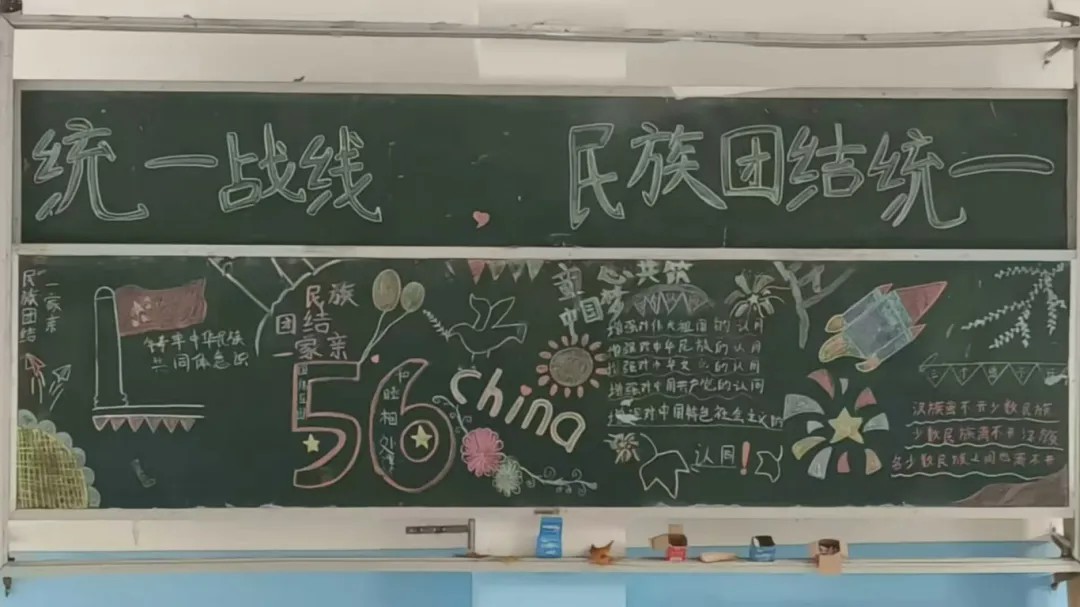 统一战线
民族团结统一
民族团结
一家亲
铸牢中华民族
共同体意识
民族
团结
一家亲
56
和睦相处
China
童心共筑
中国梦
增强对伟大祖国的认同
增强对中华民族的认同
增强对中华文化的认同
增强对中国共产党的认同
增强对中国特色社会主义的
认同!
汉族离不开少数民族
少数民族离不开汉族
各少数民族之间也离不开